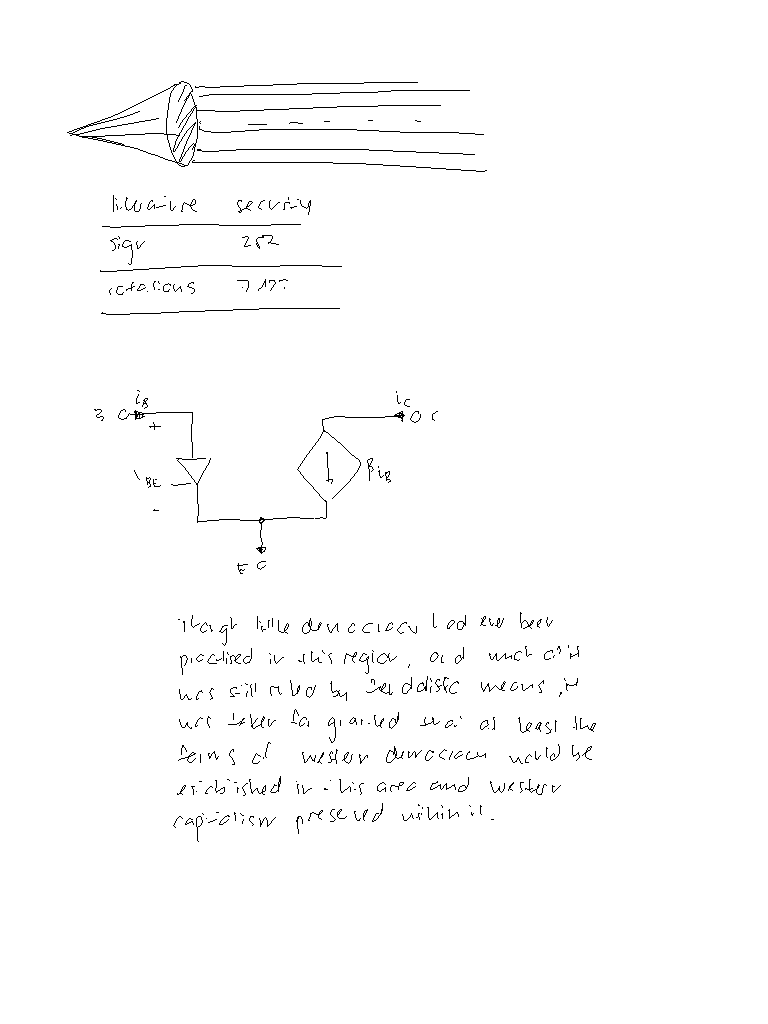 literature security
sign 252
rotations
i_B i_C
B C
+
v_BE βi_B
-
E
Though little democracy had ever been
practised in this region, and much of it
was still ruled by feudalistic means, it
was taken for granted that at least the
forms of western democracy would be
established in this area and western
capitalism preserved within it.